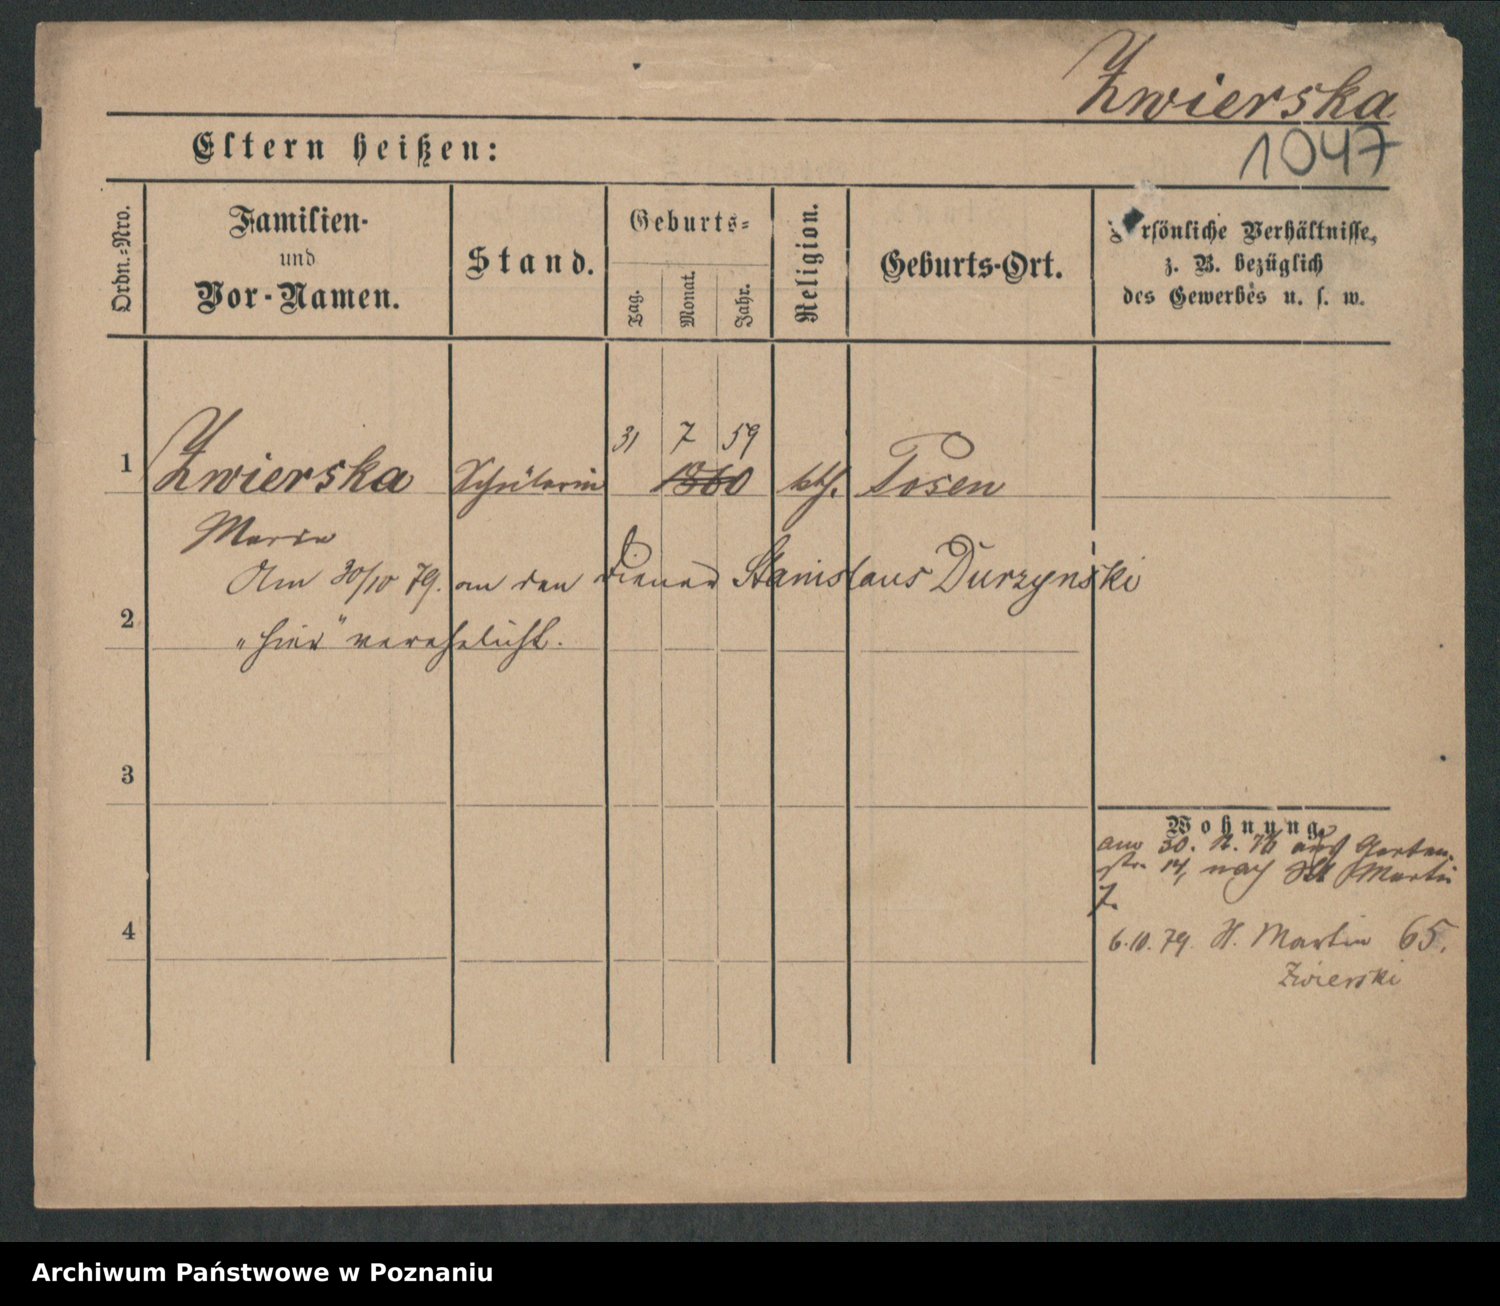 Zwierska
1047
Eltern heißen:
Ordn.-Nro.
Familien-
und
Vor-Namen.
Stand.
Geburts-
Tag.
Monat.
Jahr.
Religion.
Geburts-Ort.
Persönliche Verhältnisse,
z. B. bezüglich
des Gewerbes u. s. w.
31 7 59
1 Zwierska Schülerin 1860 kth. Posen
Maria
Am 30/10 79. an den Diener Stanislaus Durzynski
2
"hier" verehelicht.
3
Wohnung
am 30. 76 aus Garten-
str. 14, nach St Martin
7.
4
6.10.79. St. Martin 65.
Zwierski
Archiwum Państwowe w Poznaniu